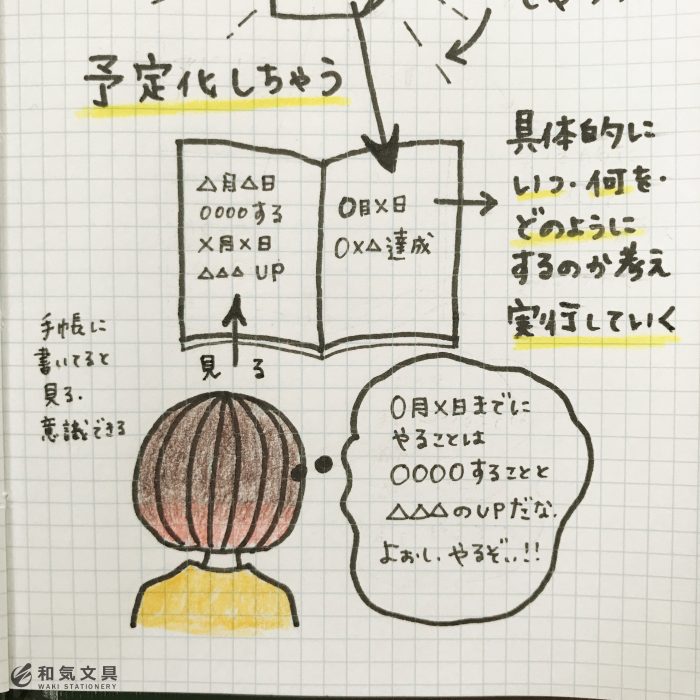 予定化しちゃう
△月△日
○○○○する
×月×日
△△△ UP
○月×日
○×△達成
具体的に
いつ・何を・
どのように
するのか考え
実行していく
手帳に
書いてると
見る、
意識できる
見る
○月×日までに
やることは
○○○○することと
△△△のUPだな。
よぉし、やるぞぃ!!
和気文具
WAKI STATIONERY